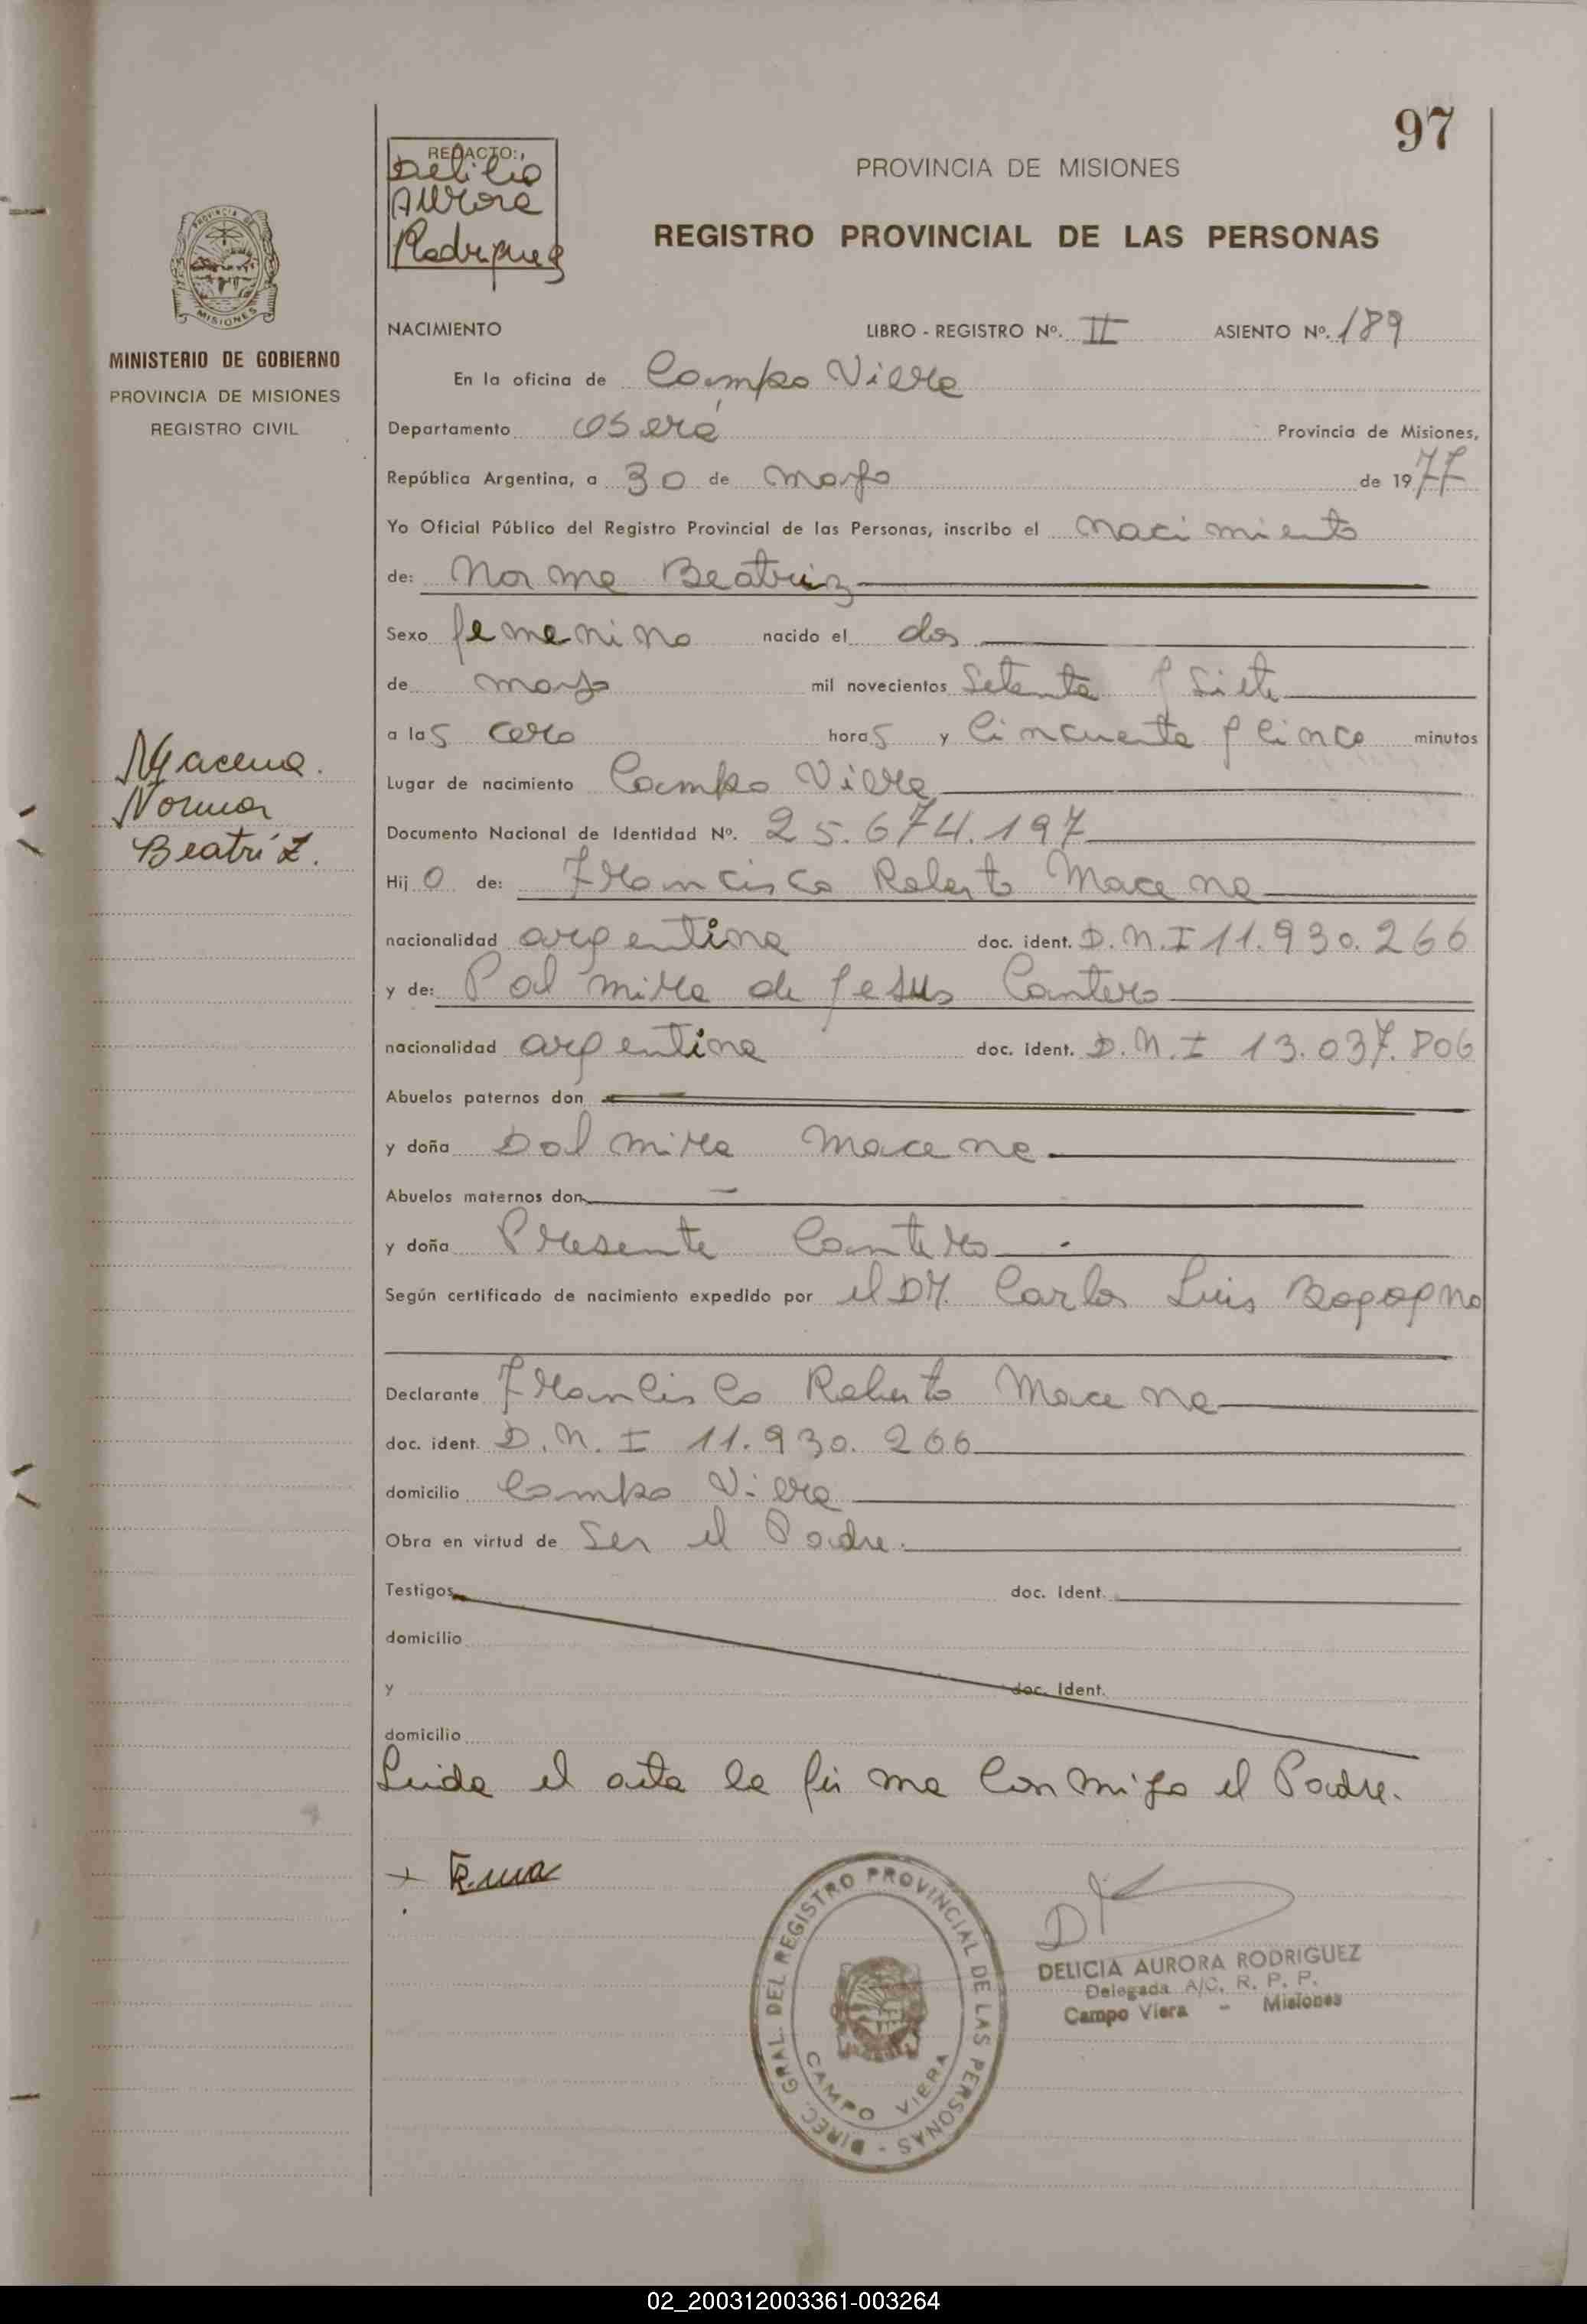 97
REDACTO:
Delicia
Aurora
Rodriguez
PROVINCIA DE MISIONES
REGISTRO PROVINCIAL DE LAS PERSONAS
PROVINCIA DE
MISIONES
MINISTERIO DE GOBIERNO
PROVINCIA DE MISIONES
REGISTRO CIVIL
Macena
Norma
Beatríz.
NACIMIENTO LIBRO - REGISTRO Nº. II ASIENTO Nº. 189
En la oficina de Campo Viera
Departamento Oberá Provincia de Misiones,
República Argentina, a 30 de mayo de 1977
Yo Oficial Público del Registro Provincial de las Personas, inscribo el nacimiento
de: Norma Beatriz
Sexo femenino nacido el dos
de mayo mil novecientos setenta y siete
a las cero horas y cincuenta y cinco minutos
Lugar de nacimiento Campo Viera
Documento Nacional de Identidad Nº. 25.674.197
Hijo de: Francisco Roberto Macena
nacionalidad argentina doc. ident. D.N.I 11.930.266
y de: Palmira de Jesus Cantero
nacionalidad argentina doc. ident. D.N.I 13.037.806
Abuelos paternos don
y doña Dalmira Macena
Abuelos maternos don
y doña Presente Cantero
Según certificado de nacimiento expedido por el Dr. Carlos Luis
Declarante Francisco Roberto Macena
doc. ident. D.N.I 11.930.266
domicilio Campo Viera
Obra en virtud de ser el Padre.
Testigos doc. ident.
domicilio
y doc. ident.
domicilio
Leida el acta la firma conmigo el Padre.
DIREC. GRAL. DEL REGISTRO PROVINCIAL DE LAS PERSONAS -
CAMPO VIERA
DELICIA AURORA RODRIGUEZ
Delegada A/C. R. P. P.
Campo Viera - Misiones
02_200312003361-003264